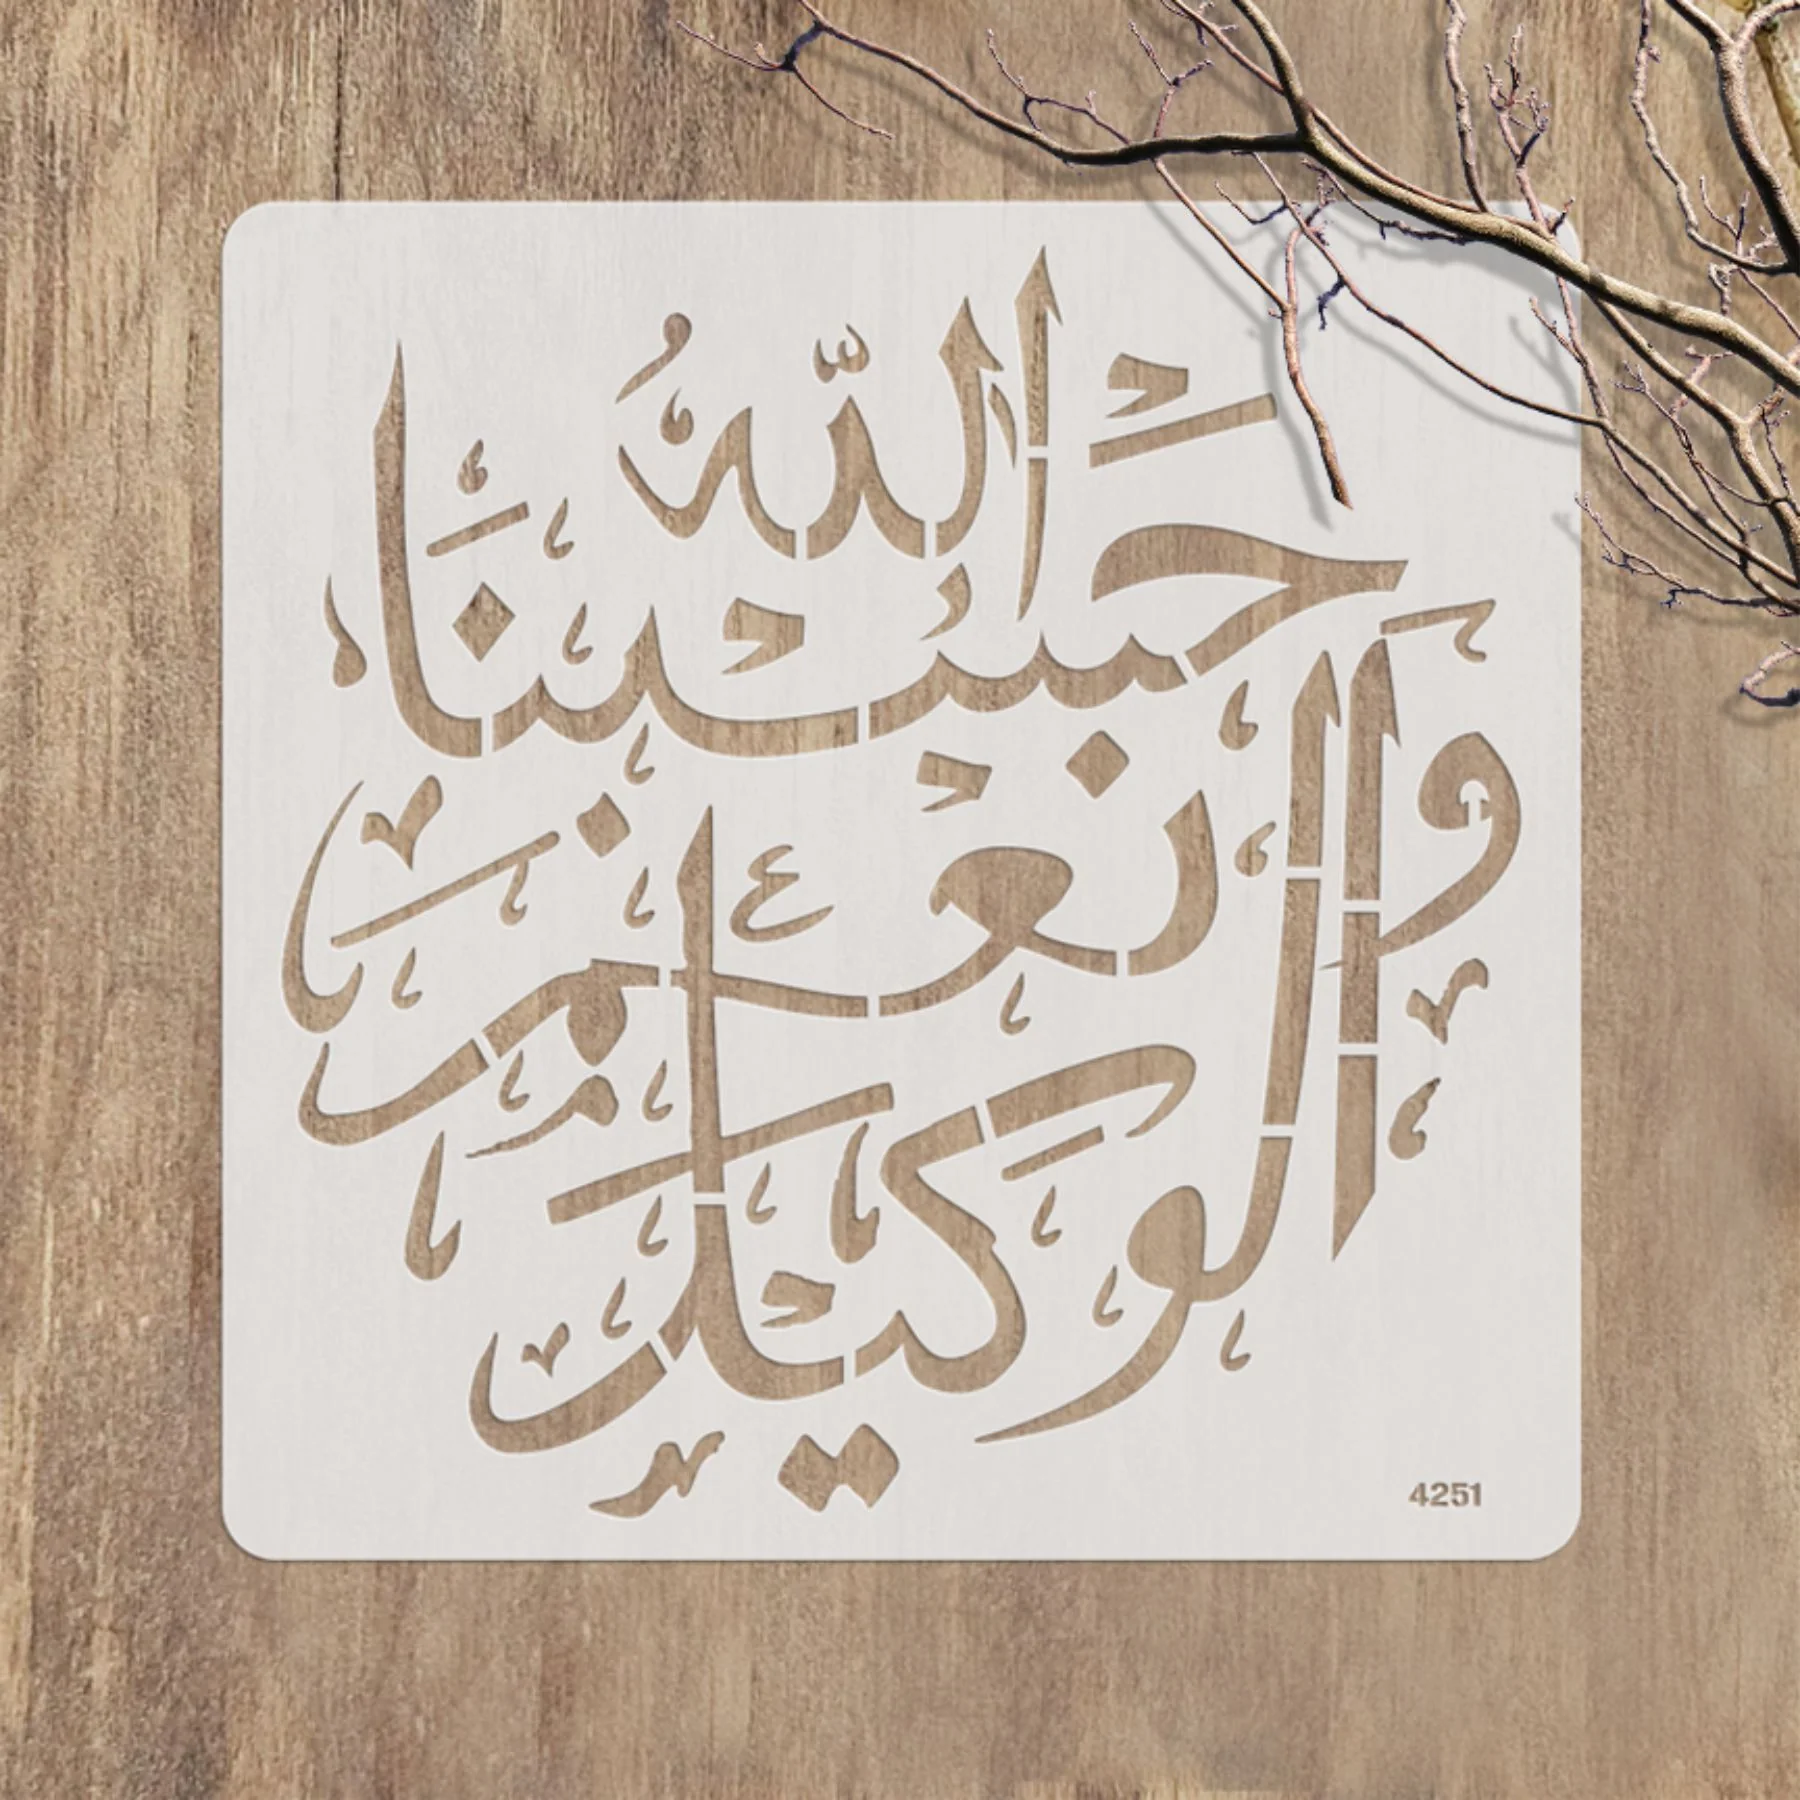 حَسْبُنَا اللّٰهُ
وَنِعْمَ
الْوَكِيلُ
4251